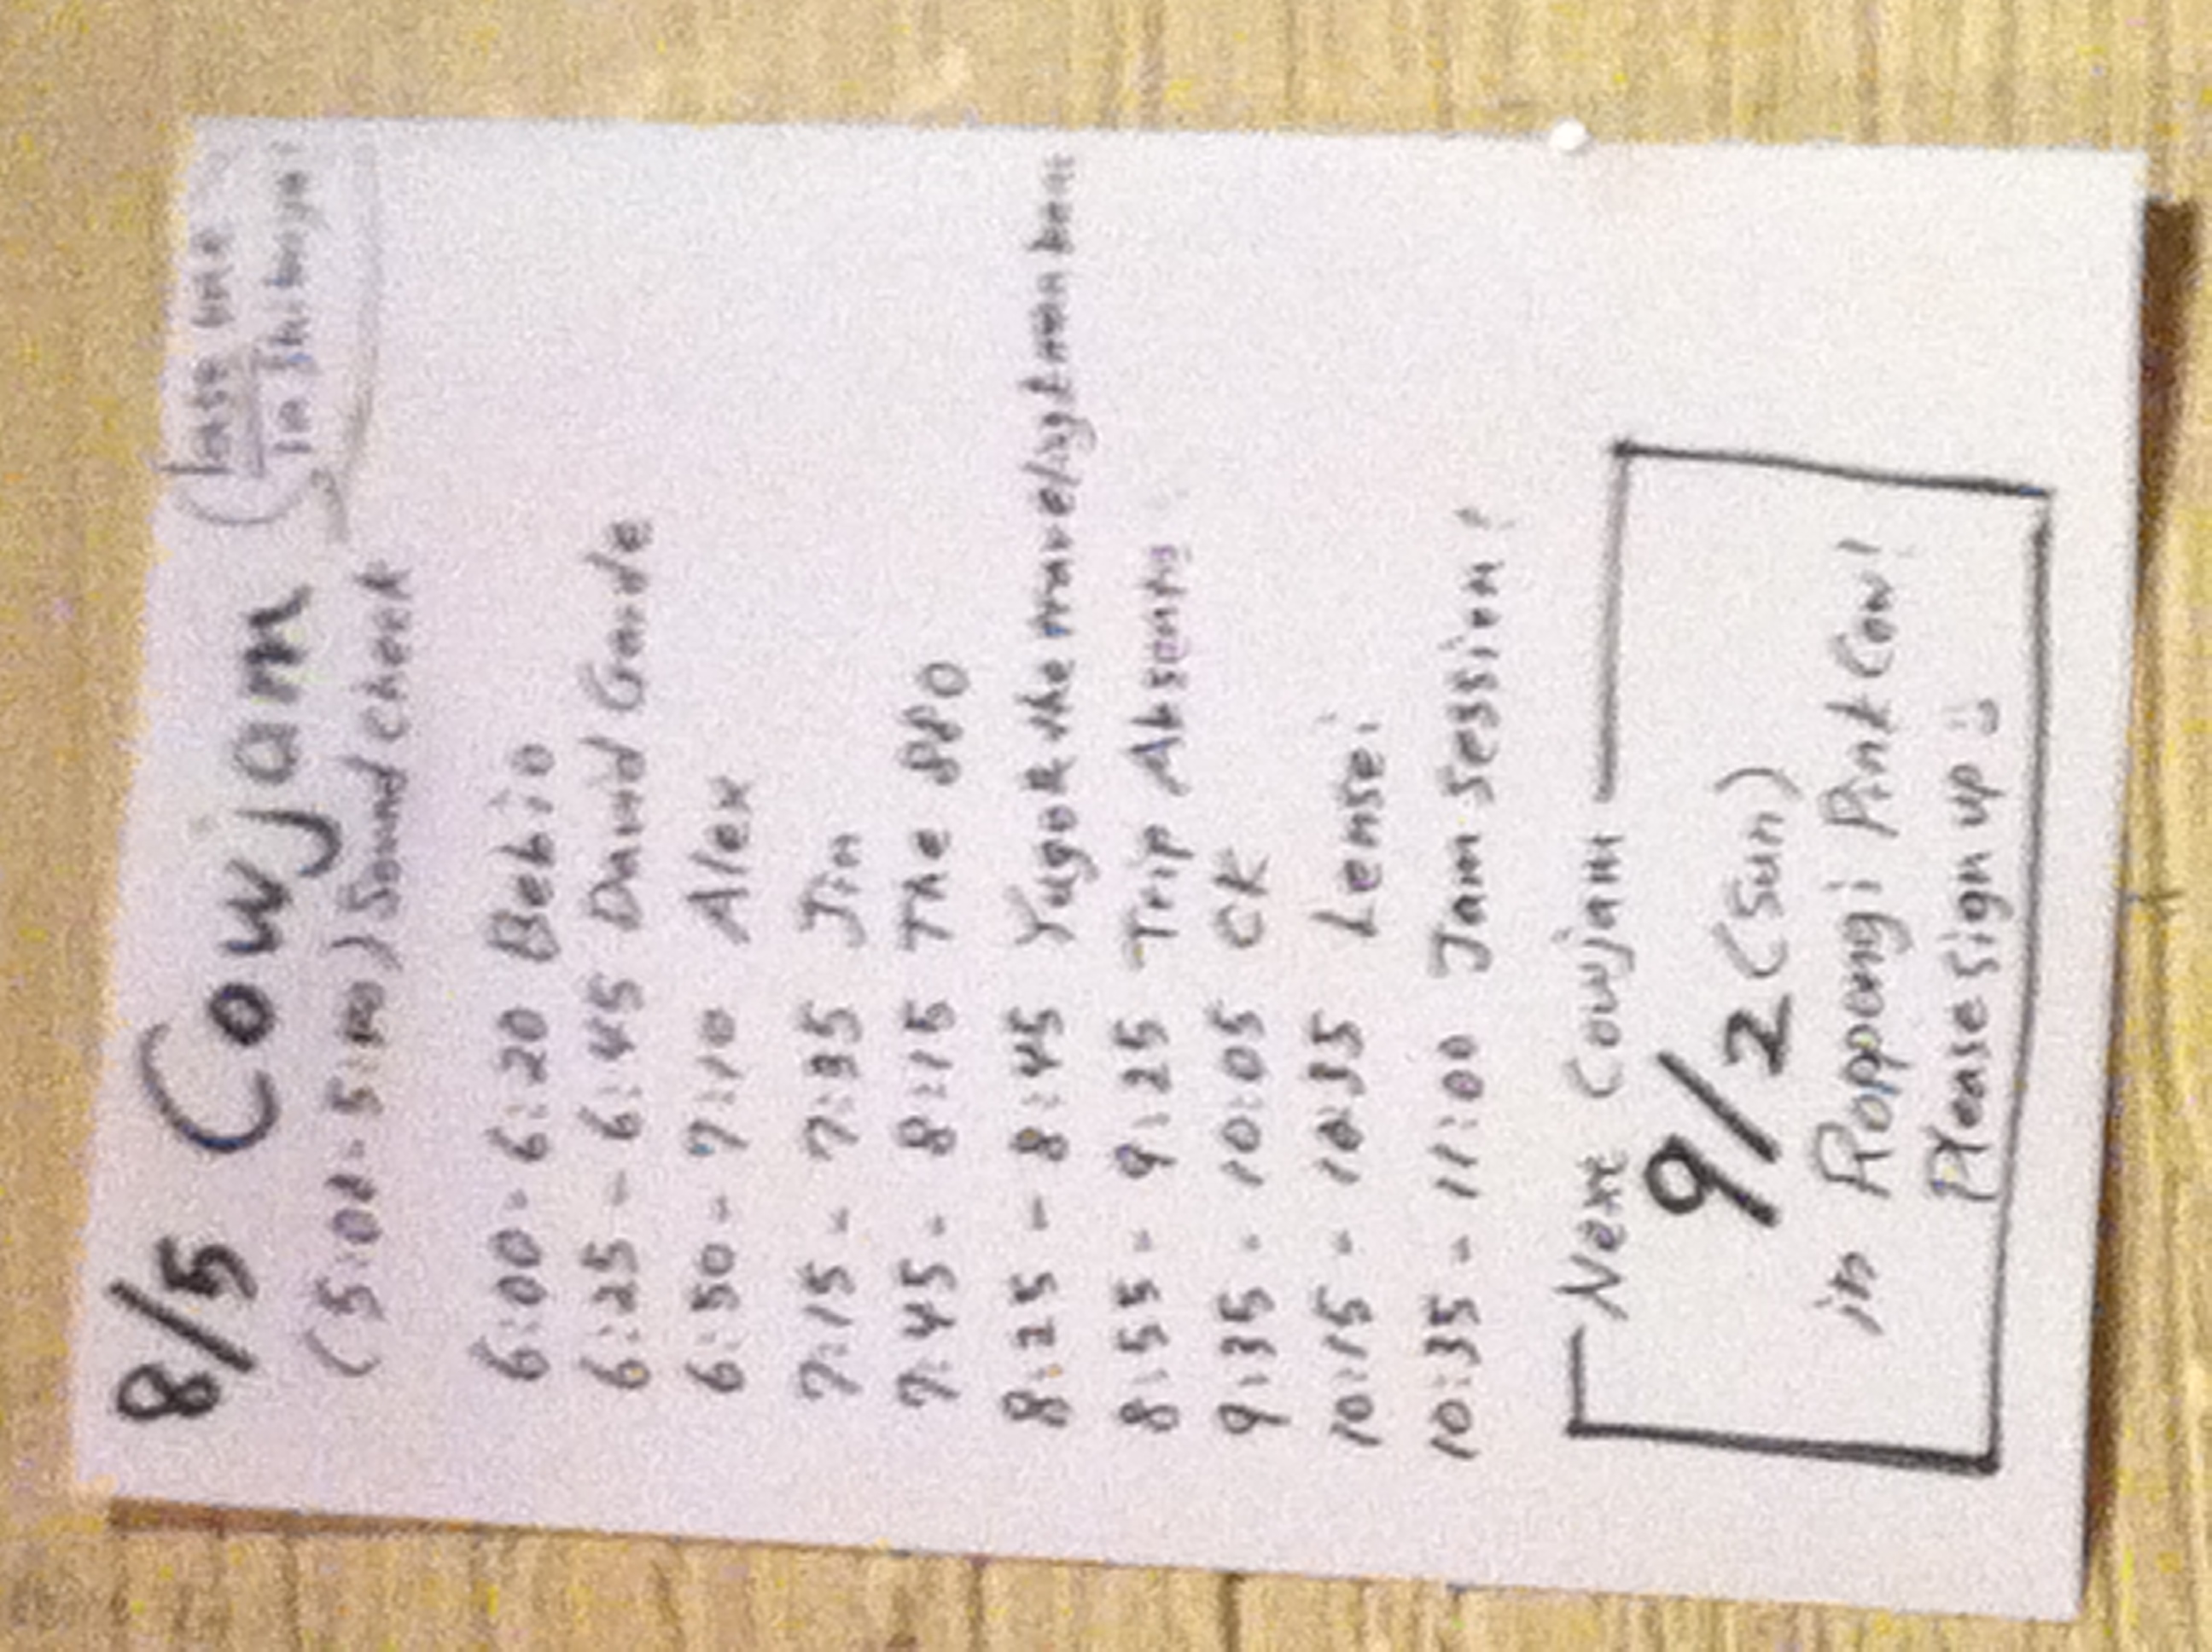 8/5 Cowjam
(last one
in Shibuya!
Sound check
6:00 - 6:20 Bebio
6:25 - 6:45 David
6:50 - 7:10 Alex
7:15 - 7:35 Jin
7:45 - 8:15 The 880
8:25 - 8:45 the
8:55 - 9:25 Trip
9:35 - 10:05 CK
10:15 - 10:35 Lensei
10:35 - 11:00 Jam session!
Next Cowjam
9/2 (Sun)
in Roppongi Pink Cow!
Please sign up